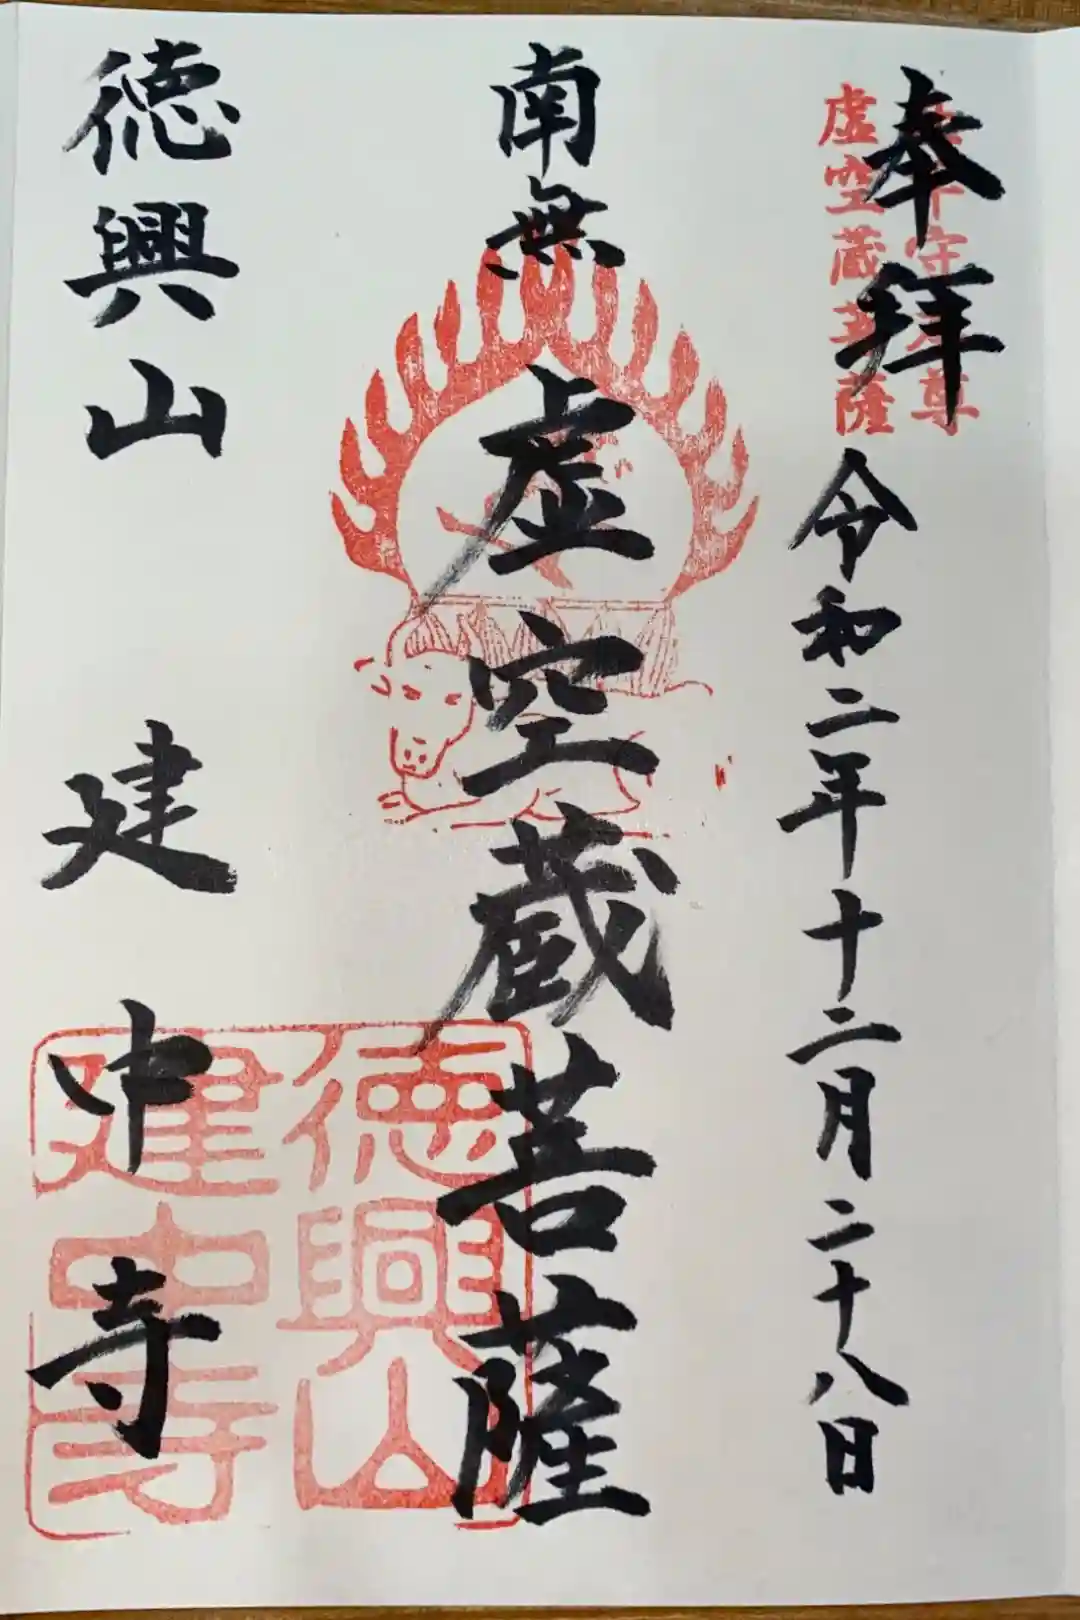 奉拝
令和二年十二月二十八日
虚空蔵菩薩
南無虚空蔵菩薩
徳興山
建中寺
徳興山
建中寺